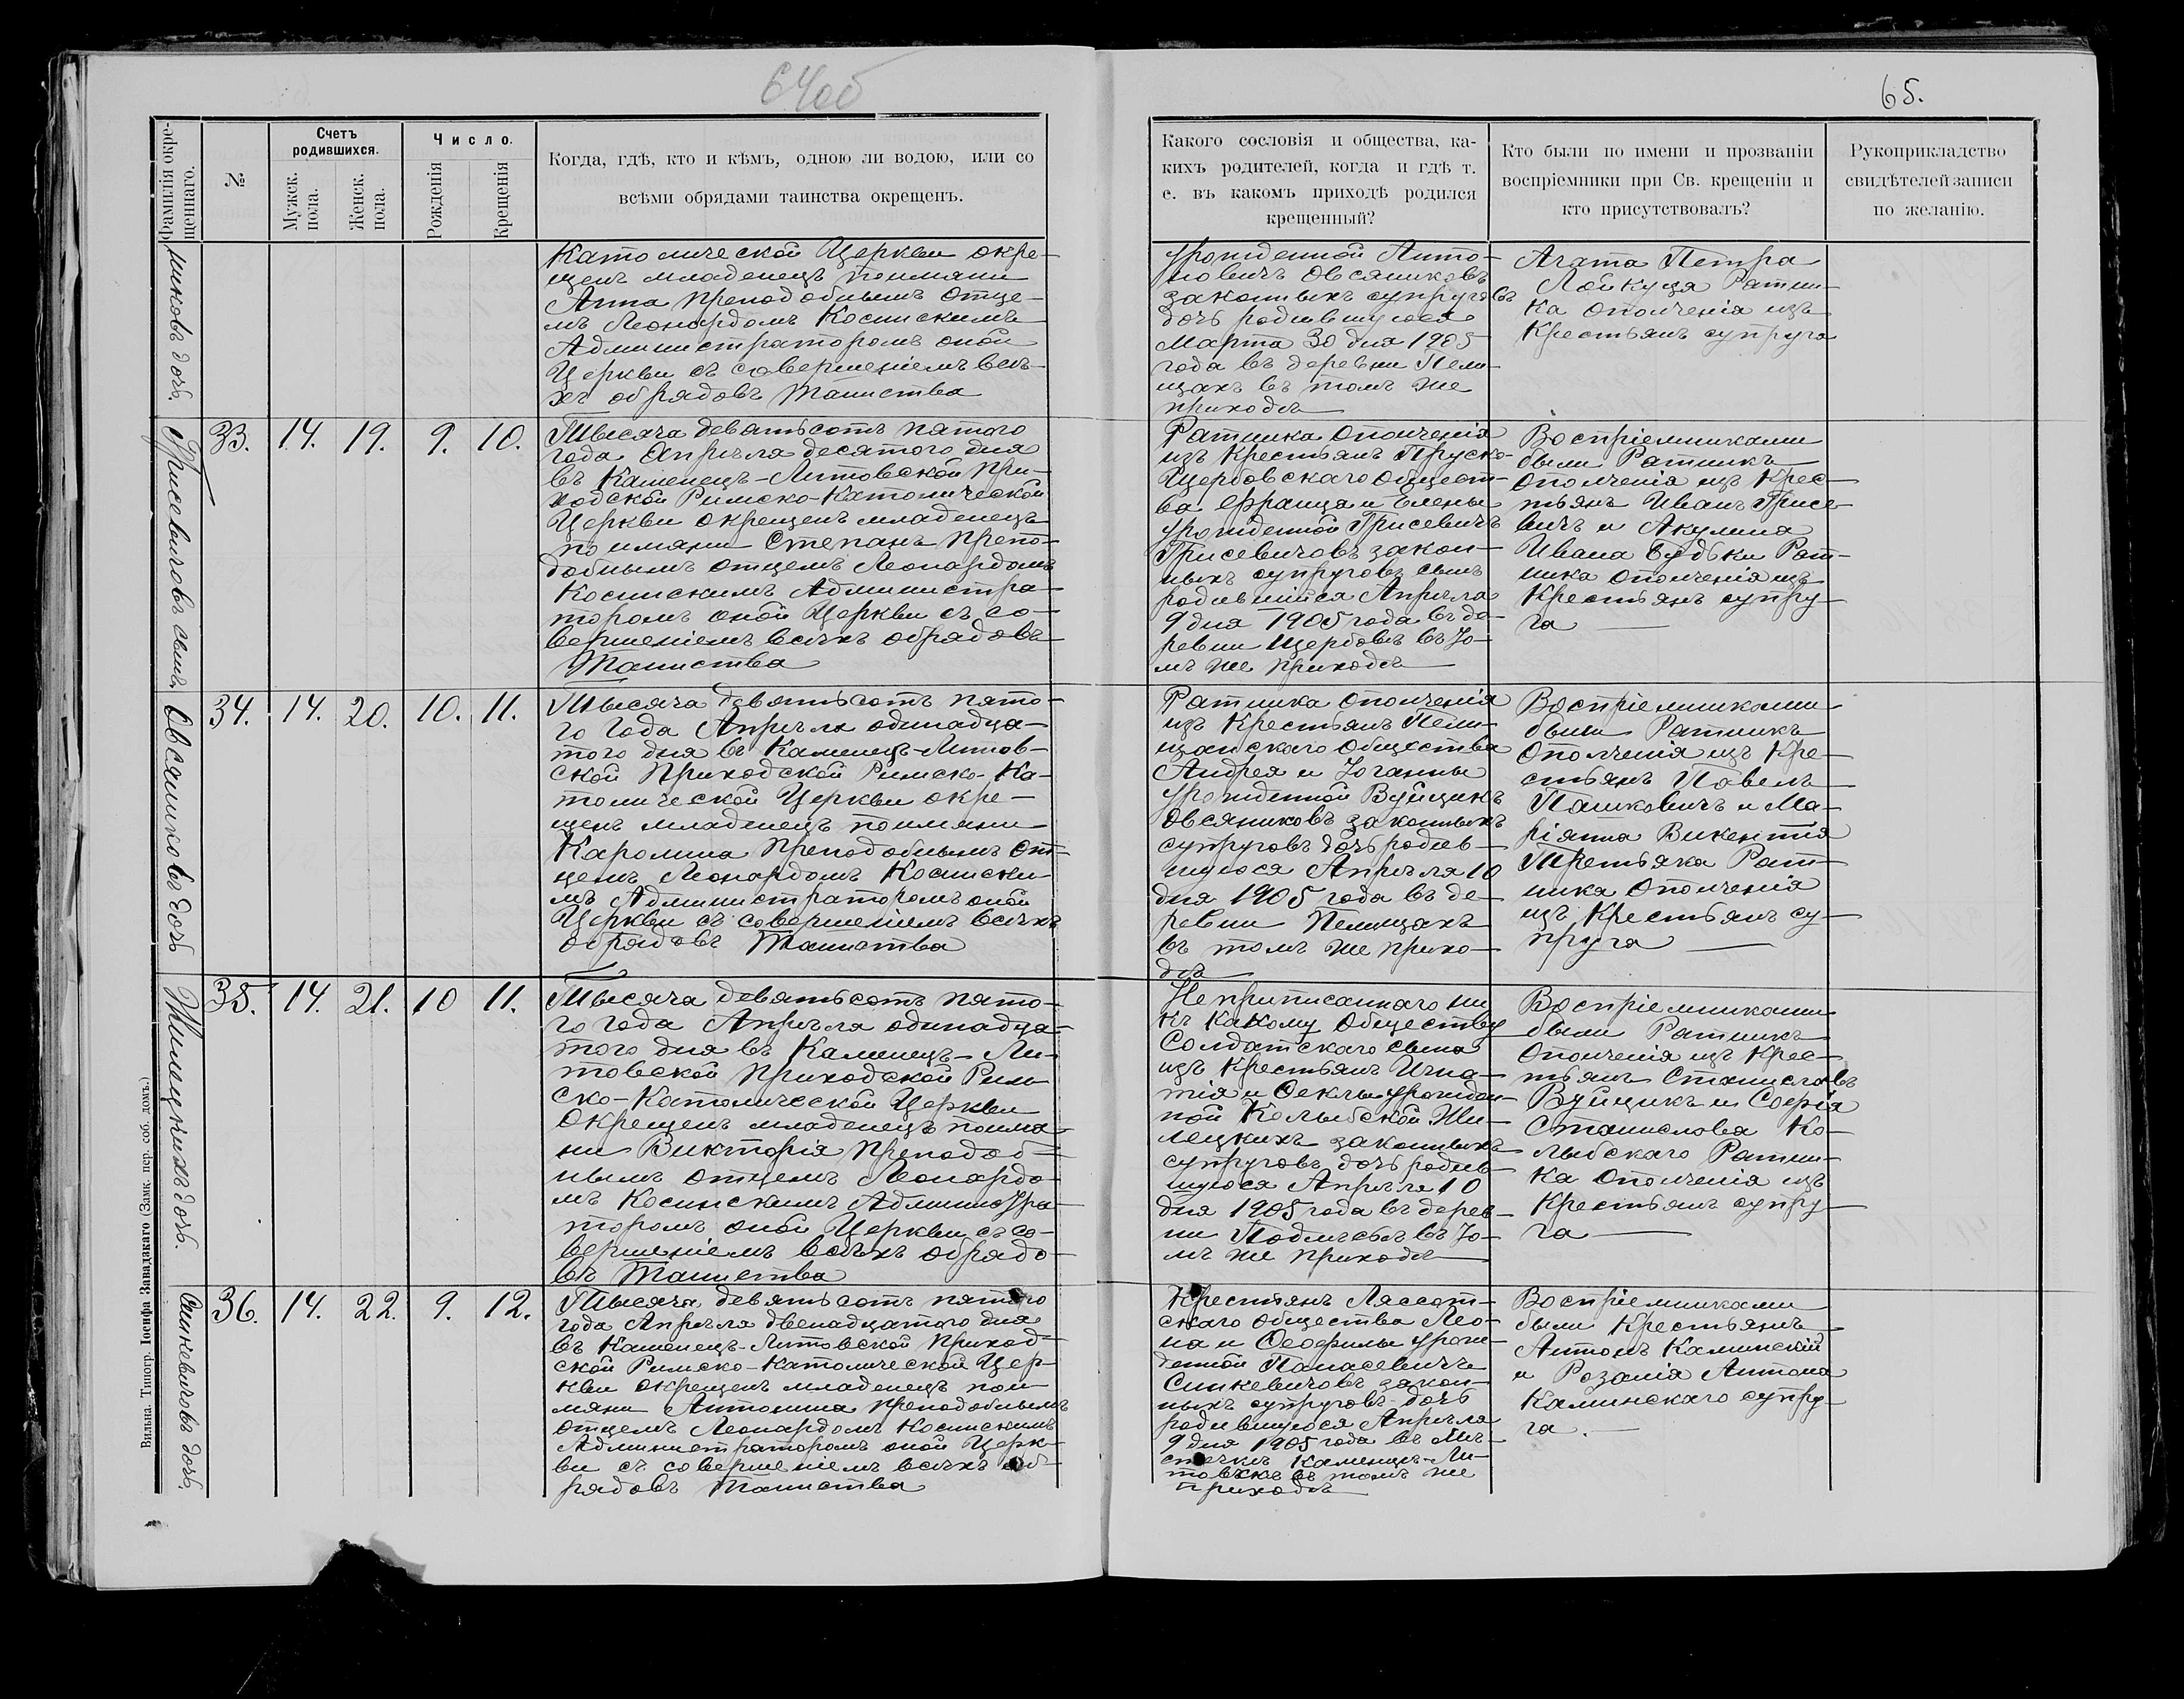 64об
65.
Фамилія окре-
щеннаго.
№
Счетъ
родившихся.
Мужск.
пола.
Женск.
пола.
Число.
Рожденія
Крещенія
Когда, гдѣ, кто и кѣмъ, одною ли водою, или со
всѣми обрядами таинства окрещенъ.
Какого сословія и общества, ка-
кихъ родителей, когда и гдѣ т.
е. въ какомъ приходѣ родился
крещенный?
Кто были по имени и прозваніи
воспріемники при Св. крещеніи и
кто присутствовалъ?
Рукоприкладство
свидѣтелей записи
по желанію.
никовъ дочь.
Католической Церкви окре-
щенъ младенецъ поимяни
Анна преподобнымъ отце-
мъ Леонардомъ Косинскимъ
Администраторомъ оной
Церкви съ совершеніемъ всѣ-
хъ обрядовъ Таинства
урожденной Анто-
новичъ Овсяниковъ
законныхъ супруговъ
дочь родившуюся
Марта 30 дня 1905
года въ деревни Пели-
щахъ въ томъ же
приходѣ
Агата Петра
Лойкуця Ратни-
ка ополченія изъ
Крестьянъ супруга
Грисевичовъ сынъ.
33. 14. 19. 9. 10.
Тысяча девятьсотъ пятого
года Апрѣля десятого дня
въ Каменецъ-Литовской При-
ходской Римско-Католической
Церкви окрещенъ младенецъ
по имяни Степанъ препо-
добнымъ отцемъ Леонардомъ
Косинскимъ Администра-
торомъ оной Церкви съ со-
вершеніемъ всѣхъ обрядовъ
Таинства
Ратника Ополченія
изъ Крестьянъ Пруско-
Щербовскаго Общест-
ва Франца и Елены
урожденной Грисевичъ
Грисевичовъ закон-
ныхъ супруговъ сынъ
родившійся Апрѣля
9 дня 1905 года въ де-
ревни Щербовѣ въ то-
мъ же приходѣ
Воспріемниками
были Ратникъ
Ополченія изъ Крес-
тьянъ Иванъ Грисе-
вичъ и Акулина
Ивана Будьки Рат-
ника ополченія изъ
Крестьянъ супру-
га
Овсяниковъ дочь
34. 14. 20. 10. 11.
Тысяча девятьсотъ пято-
го года Апрѣля одинадца-
того дня въ Каменецъ-Литов-
ской Приходской Римско-Ка-
толической Церкви окре-
щенъ младенецъ поимяни
Каролина Преподобнымъ от-
цемъ Леонардомъ Косински-
мъ Администраторомъ оной
Церкви съ совершеніемъ всѣхъ
обрядовъ Таинства
Ратника Ополченія
изъ Крестьянъ Пели-
щанскаго Общества
Андрея и Іоганны
урожденной Вуйцикъ
Овсяниковъ законныхъ
супруговъ дочь родив-
шуюся Апрѣля 10
дня 1905 года въ де-
ревни Пелищахъ
въ томъ же прихо-
дѣ
Воспріемниками
были Ратникъ
Ополченія изъ Кре-
стьянъ Павелъ
Пашковичъ и Ма-
ріянна Викентія
Третьяка Рат-
ника Ополченія
изъ Крестьянъ су-
пруга
Жилецкихъ дочь.
35. 14. 21. 10 11.
Тысяча девятьсотъ пято-
го года Апрѣля одинадца-
того дня въ Каменецъ-Ли-
товской Приходской Рим-
ско-Католической Церкви
Окрещенъ младенецъ поимя-
ни Викторія Преподоб-
нымъ отцемъ Леонардо-
мъ Косинскимъ Администра-
торомъ оной Церкви съ со-
вершеніемъ всѣхъ обрядо-
въ Таинства
Неприписаннаго ни
къ какому Обществу
Солдатскаго сына
изъ Крестьянъ Игна-
тія и Феклы урожден-
ной Колыбской Жи-
лецкихъ законныхъ
супруговъ дочь родив-
шуюся Апрѣля 10
дня 1905 года въ дерев-
ни Подлѣсьѣ въ то-
мъ же приходѣ
Воспріемниками
были Ратникъ
Ополченія изъ Крес-
тьянъ Станиславъ
Вуйцикъ и Софія
Станислова Ко-
лыбскаго Ратни-
ка Ополченія изъ
Крестьянъ супру-
га
Синкевичовъ дочь.
36. 14. 22. 9. 12.
Тысяча девятьсотъ пятого
года Апрѣля двенадцатого дня
въ Каменецъ-Литовской Приход-
ской Римско-Католической Цер-
кви окрещенъ младенецъ пои-
мяни Антонина преподобнымъ
отцемъ Леонардомъ Косинскимъ
Администраторомъ оной Церк-
ви съ совершеніемъ всѣхъ об-
рядовъ Таинства
Крестянъ Лясот-
скаго общества Лео-
на и Феофилы урож-
денной Панасевичъ
Синкевичовъ закон-
ныхъ супруговъ дочь
родившуюся Апрѣля
9 дня 1905 года въ мѣ-
стечкѣ Каменцѣ-Ли-
товскѣ въ томъ же
приходѣ
Воспріемниками
были Крестьянъ
Антонъ Каминскій
и Розалія Антона
Каминскаго супру-
га.
Вильна. Типогр. Іосифа Завадзкаго (Замк. пер. соб. домъ.)